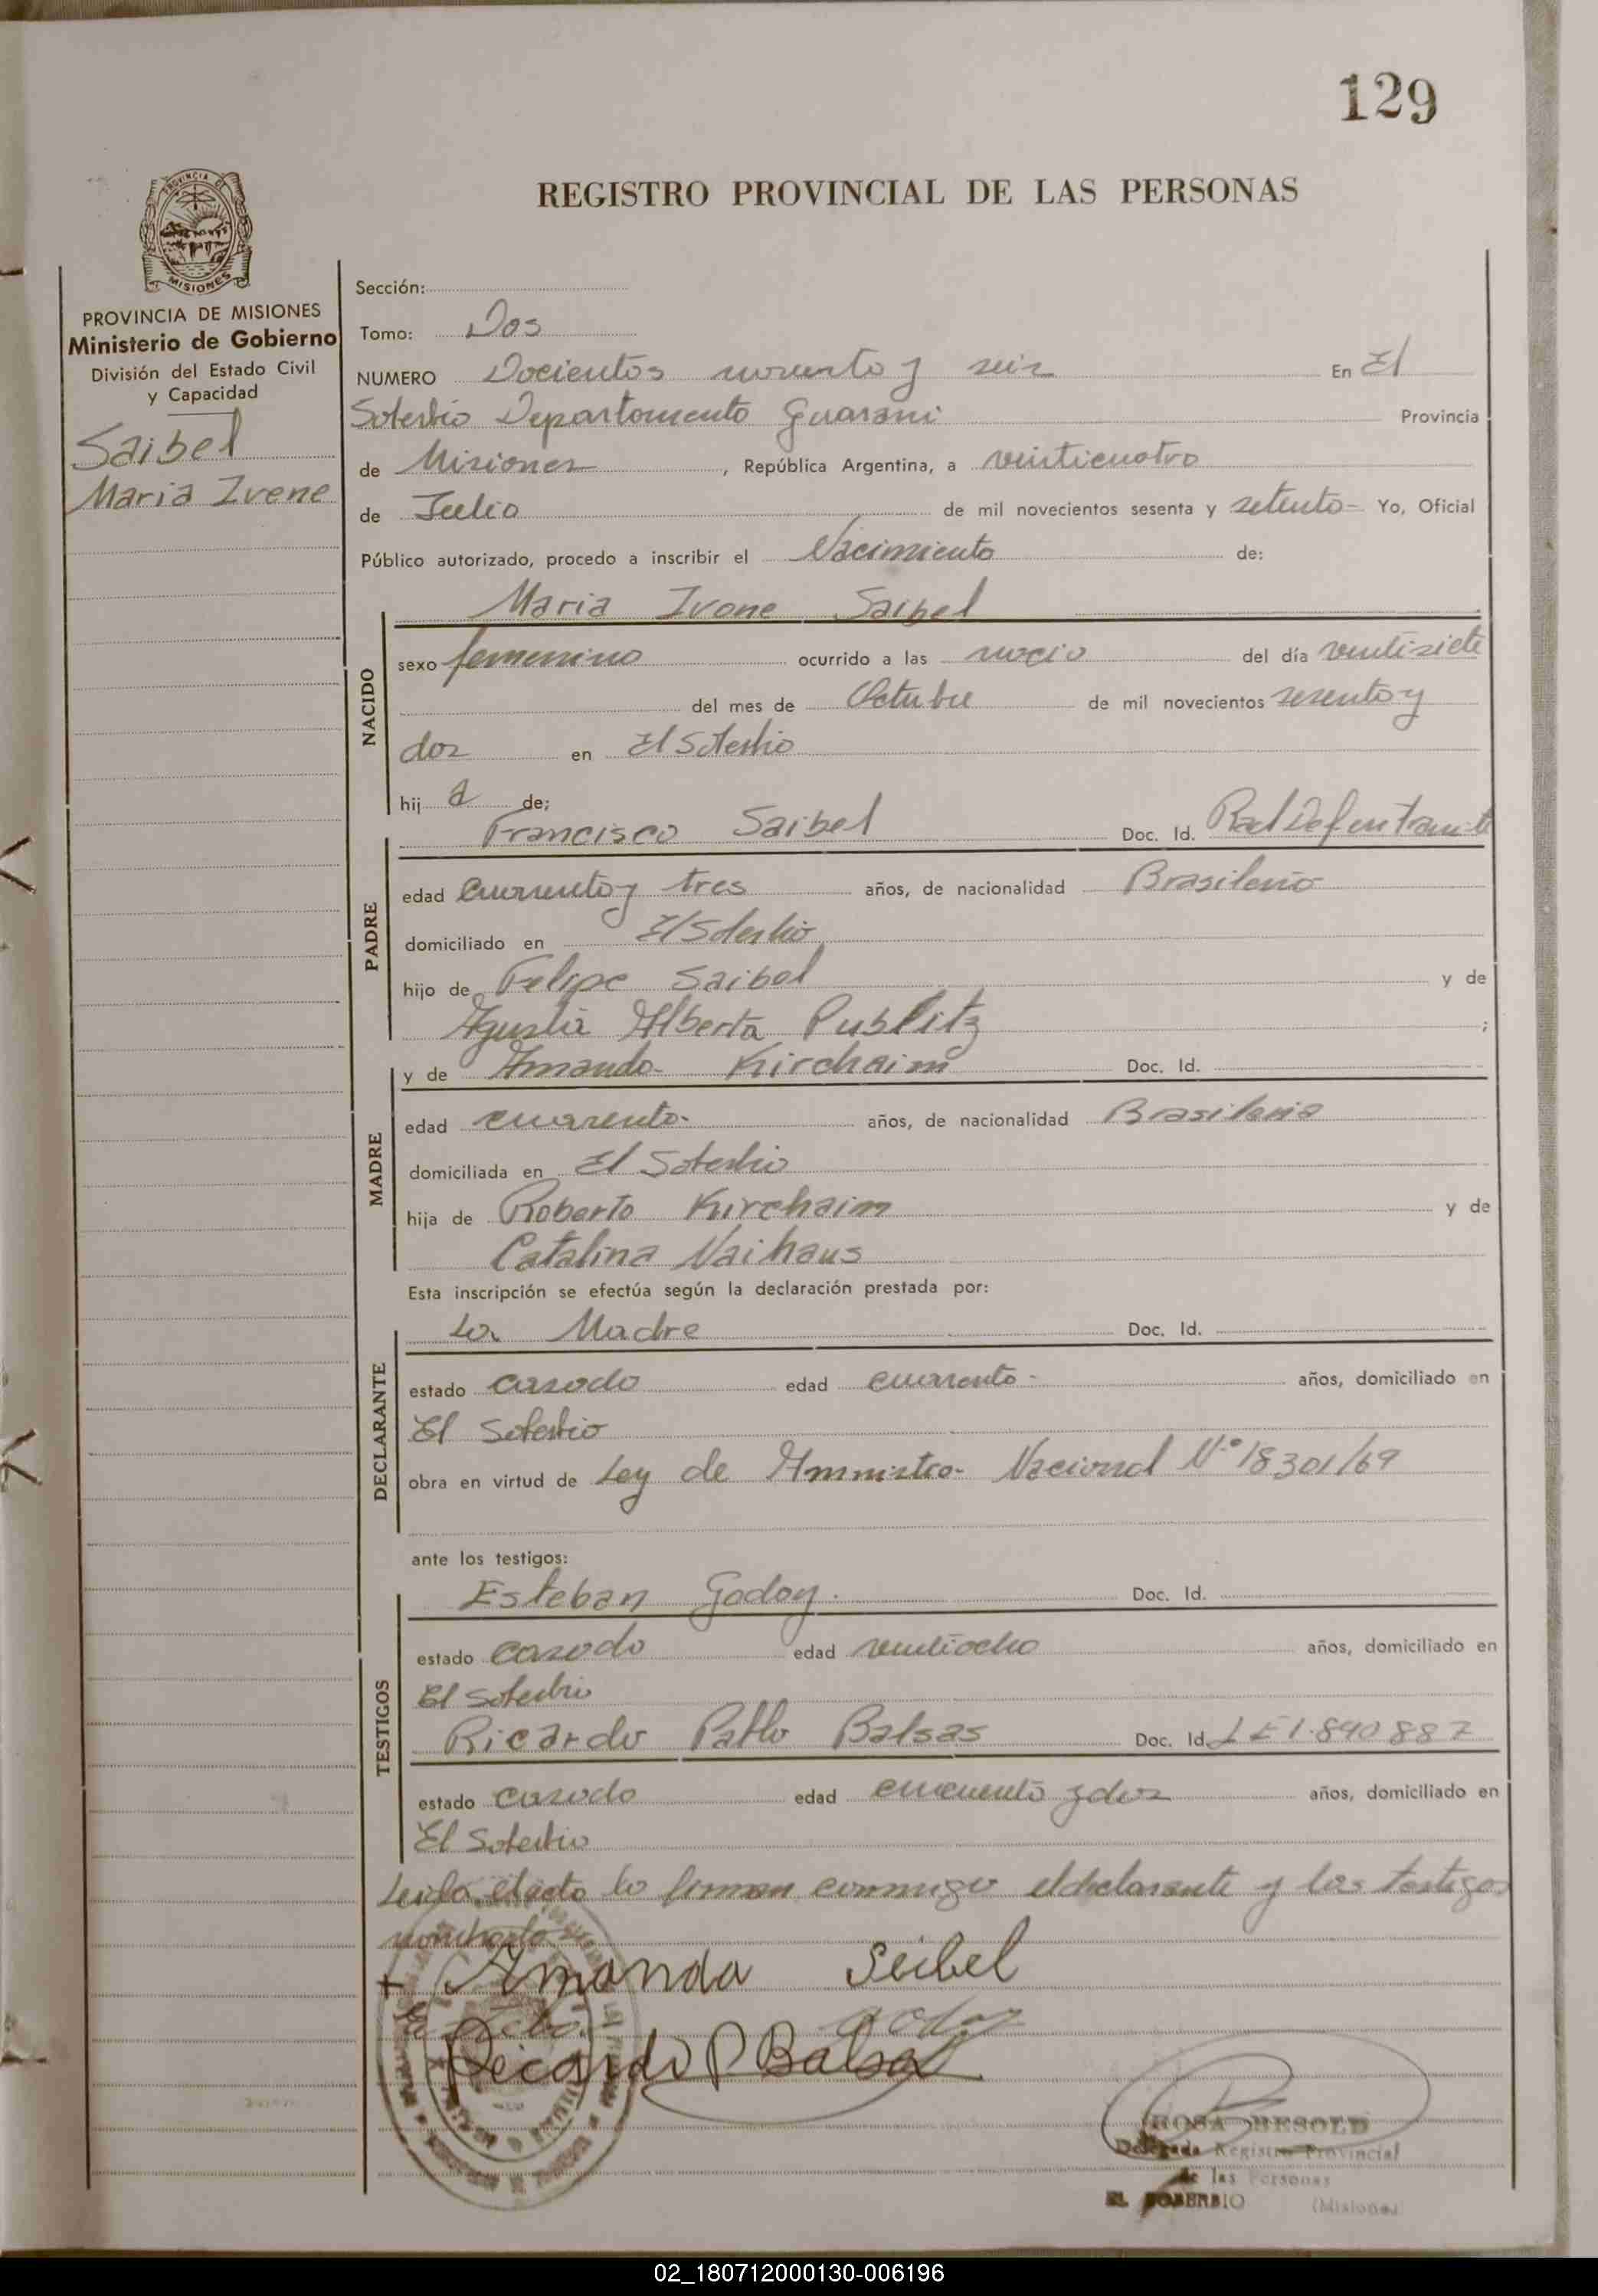 129
REGISTRO PROVINCIAL DE LAS PERSONAS
PROVINCIA DE MISIONES
MISIONES
PROVINCIA DE MISIONES
Ministerio de Gobierno
División del Estado Civil
y Capacidad
Saibel
Maria Ivene
Sección:
Tomo: Dos
NUMERO Docientos noventa y seis En El
Soberbio Departamento Guarani Provincia
de Misiones , República Argentina, a veinticuatro
de Julio de mil novecientos sesenta y setenta- Yo, Oficial
Público autorizado, procedo a inscribir el Nacimiento de:
Maria Ivone Saibel
NACIDO
sexo femenino ocurrido a las del día veintisiete
del mes de Octubre de mil novecientos sesenta y
dos en El Soberbio
hij a de;
PADRE
Francisco Saibel Doc. Id. Rad Def en Tramite
edad cuarenta y tres años, de nacionalidad Brasileño
domiciliado en El Soberbio
hijo de Felipe Saibel y de
Agustia Alberta Publitz ;
MADRE
y de Amanda- Kirchaim Doc. Id.
edad cuarenta- años, de nacionalidad Brasileña
domiciliada en El Soberbio
hija de Roberto Kirchaim y de
Catalina Naihaus
Esta inscripción se efectúa según la declaración prestada por:
DECLARANTE
La Madre Doc. Id.
estado casada edad cuarenta- años, domiciliado en
El Soberbio
obra en virtud de Ley de Amnistia- Nacional N.º 18301/69
ante los testigos:
TESTIGOS
Esteban Godoy. Doc. Id.
estado casado edad veintiocho años, domiciliado en
El Soberbio
Ricardo Pablo Balsas Doc. Id. LE 1.890887
estado casado edad cincuenta y dos años, domiciliado en
El Soberbio
Leida el acta lo firman conmigo el declarante y los testigos
nombrado
+ Amanda Seibel
Godoy
Recardo P Balsa
ROSA BESOLD
Delegada Registro Provincial
de las Personas
EL SOBERBIO (Misiones)
02_180712000130-006196